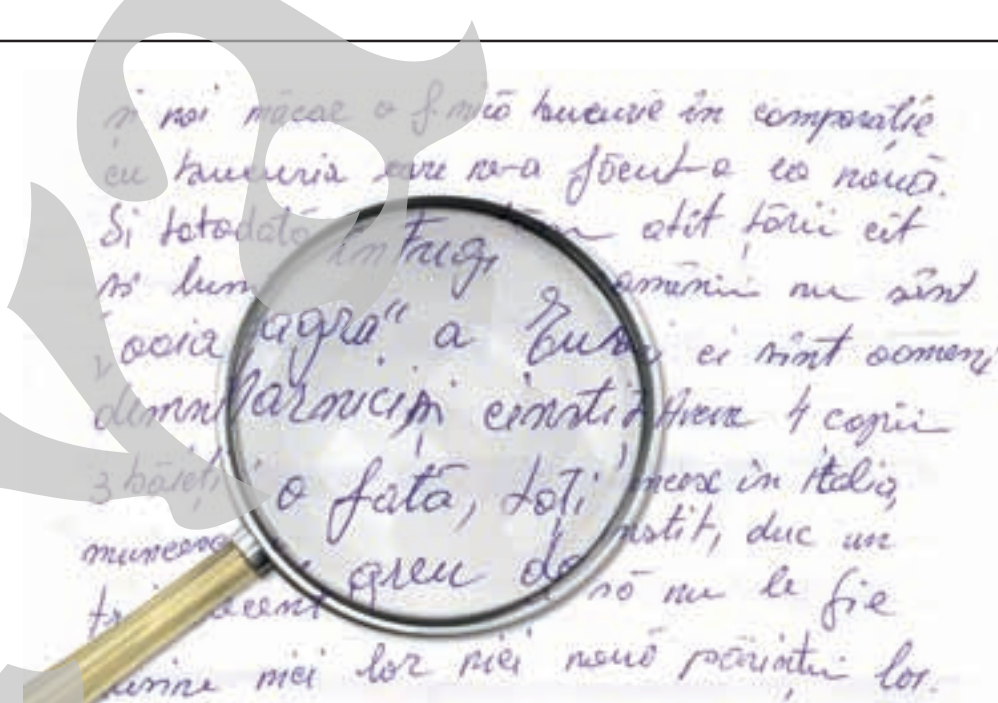 și noi măcar o f. mică bucurie în comparație
cu bucuria care ne-a făcut-o ea nouă.
Și totodată în Frig atît țării cît
și lum nu sînt
oaia agră" a Eur ei sînt oameni
demni harnici și cinstiți Avem 4 copii
3 băieți o fată, toți în Italia,
muncesc greu nstit, duc un
decent să nu le fie
nici lor nici nouă părinții lor.